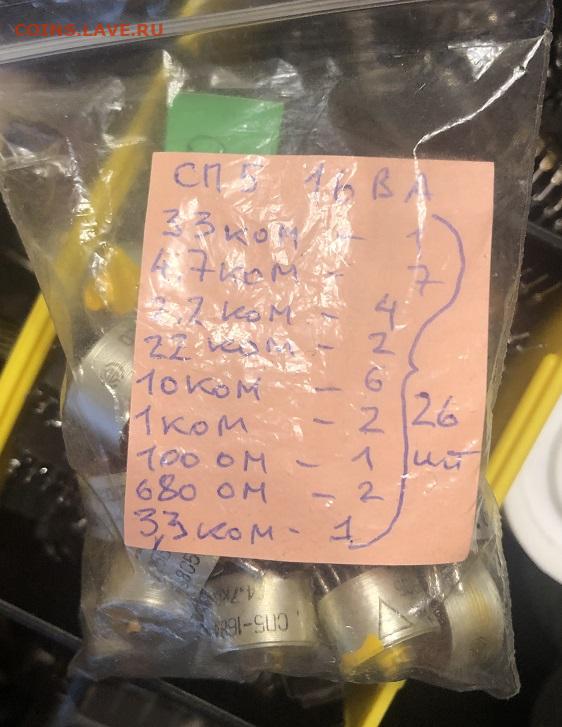 COINS.LAVE.RU
СП5 16 ВА
33 ком - 1
4.7 ком - 7
2.2 ком - 4
22 ком - 2
10 ком - 6
1 ком - 2
100 ом - 1
680 ом - 2
3,3 ком - 1
26
шт
4.7К
СП5-16ВА